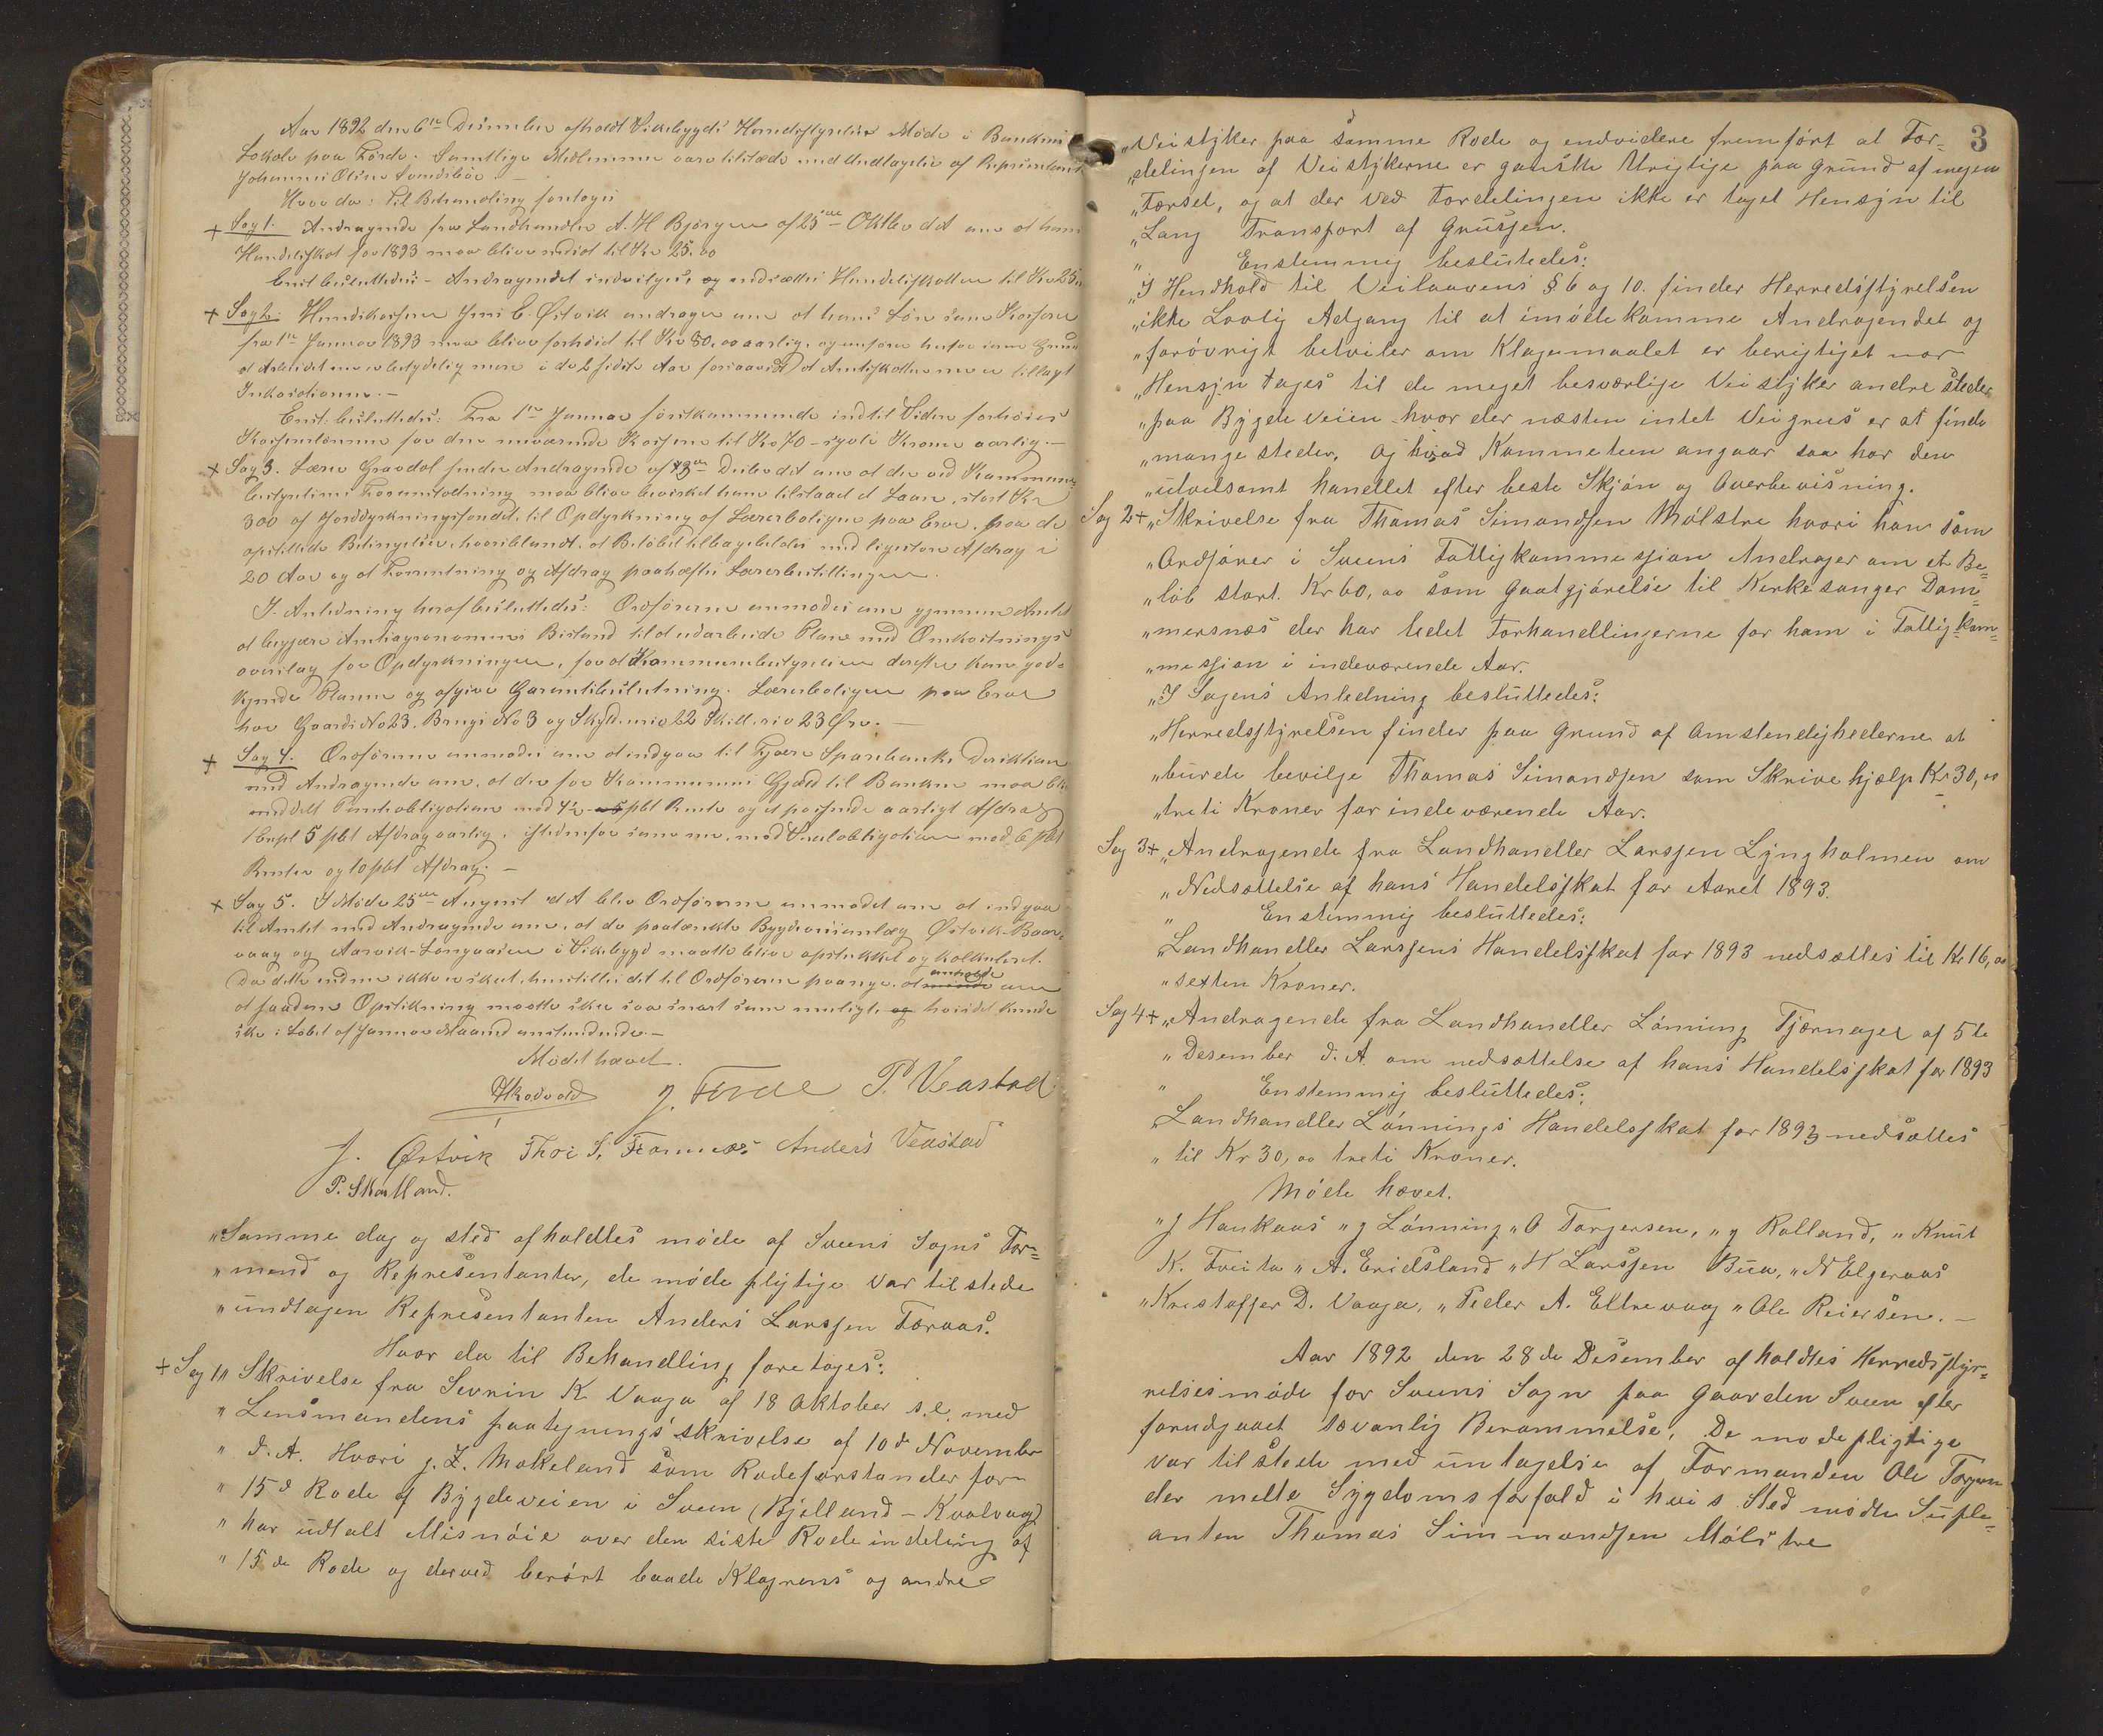 Aar 1892 den 6te December afholdt Vikebygds Herredsstyrelse Møde i Bankens
Lokale paa Førde. Samtlige Medlemmer vare tilstede med Undtagelse af Repræsentant
Johannes Olsen
Hvor da: til Behandling foretoges
+ Sag 1. Andragende fra Landhandler A. H. Bjørgen af 25de Oktbr d A om at hans
Handelsskat for 1893 maa blive nedsat til Kr 25.00
Enst besluttedes - Andragendet indvilges, og nedsættes Handelsskatten til Kr 25,
+ Sag 2. Herredskasserer Jens E. Østvik andrager om at hans Løn som Kasserer
fra 1te Januar 1893 maa blive forhøiet til Kr 80,00 aarlig, og anføres herfor som Grund
at Arbeidet nu er betydelig mere i de 2 sidste Aar foraarsaget at Amtsskatten nu er tillagt
Inkassationen. -
Enst: besluttedes: Fra 1te Januar førstkommende indtil Videre forhøies
Kassererlønnen for den nuværende Kasserer til Kr 70 - sytti Kroner aarlig. -
+ Sag 3. Lærer Gravdal sender Andragende af 3de Decbr d A om at der ved Kommune-
bestyrelsens Foranstaltning maa blive bevirket ham tilstaaet et Laan, stort Kr
300 af Jorddyrkningsfondet, til Opdyrkning af Lærerboligen paa Eroe, paa de
opstillede Betingelser, hvoriblandt, at Beløbet tilbagebetales med ligestore Afdrag i
20 Aar og at Forrentning og Afdrag paahæftes Lærerbestillingen.
I Anledning heraf besluttedes: Ordføreren anmodes om gjennem Amtet
at begjære Amtsagronomens Bistand til at udarbeide Plan med Omkostnings
overslag for Opdyrkningen, for at Kommunebestyrelsen derefter kan god-
kjende Planen og afgive Garantibeslutning. Lærerboligen paa Eroe
har Gaards No 23. Brugs No 3 og Skyld. 22 Skill. 23 Øre. -
+ Sag 4. Ordføreren anmodes om at indgaa til Fjære Sparebanks Direktion
med Andragende om, at der for Kommunens Gjæld til Banken maa blive
meddelt Panteobligation med 4½ pCt Rente og et passende aarligt Afdrag
1 Expl 5 pCt Afdrag aarlig, istedenfor som nu, mod Vexelobligation mod 6 pCt
Renter og 10 pCt Afdrag. -
+ Sag 5. I Møde 25de August d A blev Ordføreren anmodet om at indgaa
til Amtet med Andragende om, at de paatænkte Bygdeveianlæg Østvik-Baar-
vaag og Aarvik-Langaasen i Vikebygd maatte blive opstukket og kalkuleret.
Da dette endnu ikke er skeet, henstilles det til Ordføreren paany at anholde om
at saadan Opstikning maatte ske saa snart som muligt, hvis det kunde
ske i Løbet af Januar Maaned anstundende. -
Mødet hævet.
J. Førde P. Veastad
J. Østvik Thor S. Framnes Anders Veastad
P. Skartland.
„Samme dag og sted afholdtes møde af Sveens Sogns For=
„mend og Representanter, de møde pligtige var tilstede
„undtagen Representanten Anders Larssen Færaas.
Hvor da til Behandling foretoges:
+ Sag 1„ Skrivelse fra Sevrin K. Vaaga af 18 Oktober s.l. med
„Lensmandens paategnings skrivelse af 10de November
„d. A. Hvori J. Z. Mokeland som Rodeforstander for
„15de Rode af Bygdeveien i Sveen (Bjelland - Kvalvaag)
„har udtalt Misnøie over den siste Rode indeling af
„15de Rode og derved berørt baade Klagerens og andre
3
„Vei stjker paa samme Rode og endvidere fremført at For=
„delingen af Vei stjkerne er ganske Urigtige paa grund af megen
„Færsel, og at der ved Fordelingen ikke er taget Hensjn til
„Lang Transport af Grusjen.
„ Enstemmig beslutedes:
„I Hendhold til Veilaavens § 6 og 10. finder Herredsstyrelsen
„ikke Lovlig Adgang til at imøde komme Andragendet og
„forøvrigt betviler om Klagemaalet er berigtiget nor
„Hensjn tages til de meget besværlige Vei stjker andre steder
„paa Bygde Veien hvor der næsten intet Vei grus er at finde
„mange steder, og hvad Kommeteen angaar saa har den
„utvelsomt handlet efter beste Skjøn og Overbevisning.
Sag 2 + „Skrivelse fra Thomas Simondsen Mølstre hvori han som
„Ordfører i Sveens Fattigkommessjon Andrager om et Be=
„løb stort. Kr 60,00 som Gaatgjørelse til Kirkesanger Dom=
„mersnæs der har ledet Forhandlingerne for ham i Fattig kom=
„messjon i indeværende Aar.
„I Sagens Anledning besluttedes:
„Herredsstjrelsen finder paa grund af Omstendighederne at
„burde bevilge Thomas Simondsen som Skrive hjælp Kr 30,00
„treti Kroner for inde værende Aar.
Sag 3 + „Andragende fra Landhandler Larssen Lyngholmen om
„Nedsættelse af hans Handelsskat for Aaret 1893.
„ Enstemmig besluttedes:
„Landhandler Larssens Handelsskat for 1893 nedsættes til Kr 16,00
„sexten Kroner.
Sag 4 + „Andragende fra Landhandler Lønning Tjærnagel af 5te
„Desember d. A. om nedsættelse af hans Handelsskat for 1893
„ Enstemmig besluttedes:
„Landhandler Lønnings Handelsskat for 1893 nedsættes
„til Kr 30,00 treti Kroner.
Møde hævet.
„J Haukaas „J Lønning „O Torgersen, „J Rolland, „Knut
K. Tveita „A. Eridsland „H Larssen Bua, „N Elgeraas
„Kristoffer D. Vaaga, „Peder A. Eltrevaag „Ole Reiersen. -
Aar 1892 den 28de Desember afholdtes Herredsstyr=
relsesmøde for Sveens Sogn paa Gaarden Sveen efter
forudgaaet sævanlig Berammelse. De mødepligtige
var tilstede med untagelse af Formanden Ole Torgersen
der melte Sygdomsforfald i hvis Sted mødte Suple=
anten Thomas Simmondsen Mølstre